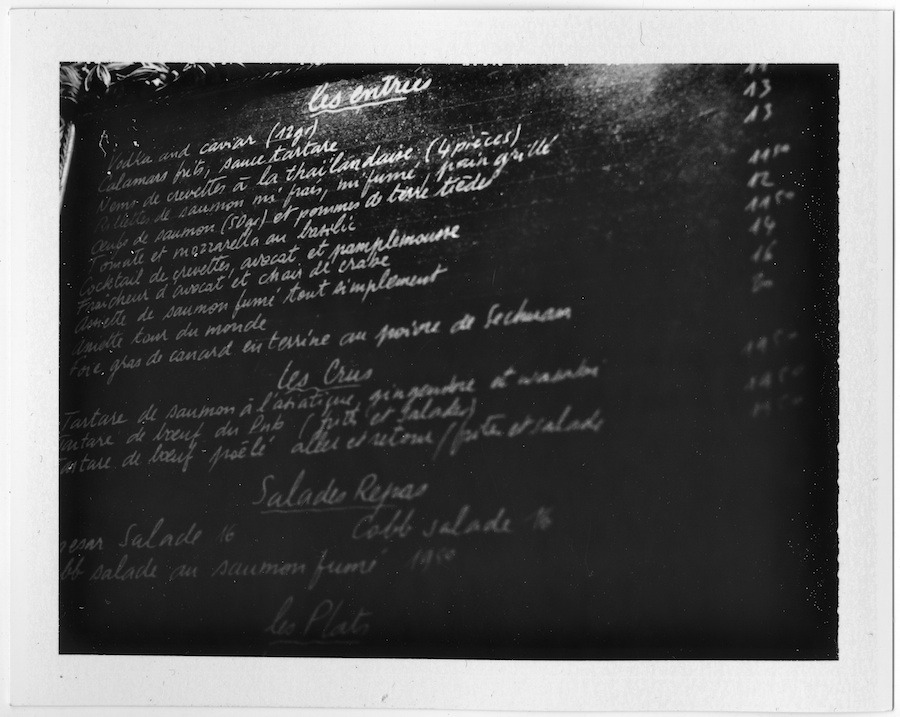 les entrées
Vodka and caviar (12gr) 13
Calamars frits, sauce tartare 13
Nems de crevettes à la thaïlandaise (4 pièces)
Rillettes de saumon mi frais, mi fumé, pain grillé 11 50
Oeufs de saumon (50gr) et pommes de terre tiède 12
Tomate et mozzarella au basilic 11 50
Cocktail de crevettes, avocat et pamplemousse 14
Fraîcheur d'avocat et chair de crabe 16
Assiette de saumon fumé tout simplement
Assiette tour du monde
Foie gras de canard en terrine au poivre de Sechuan
Les Crus
Tartare de saumon à l'asiatique, gingembre et 19 50
tartare de boeuf du Pub (frites et salades) 19 50
tartare de boeuf poêlé aller et retour (frites et salade
Salades Repas
esar Salade 16 Cobb salade 16
bb salade au saumon fumé 19 50
les Plats